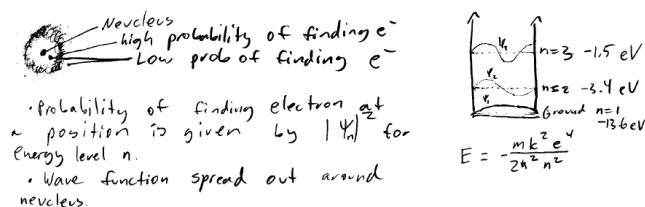 Neucleus
high probability of finding e⁻
Low prob of finding e⁻
• Probability of finding electron at
a position is given by |Ψn|² for
energy level n.
• Wave function spread out around
neucleus.
Ψ3 n=3 -1.5 eV
Ψ2 n=2 -3.4 eV
Ψ1 Ground n=1
-13.6 eV
E = - mk²e⁴ / 2ħ²n²